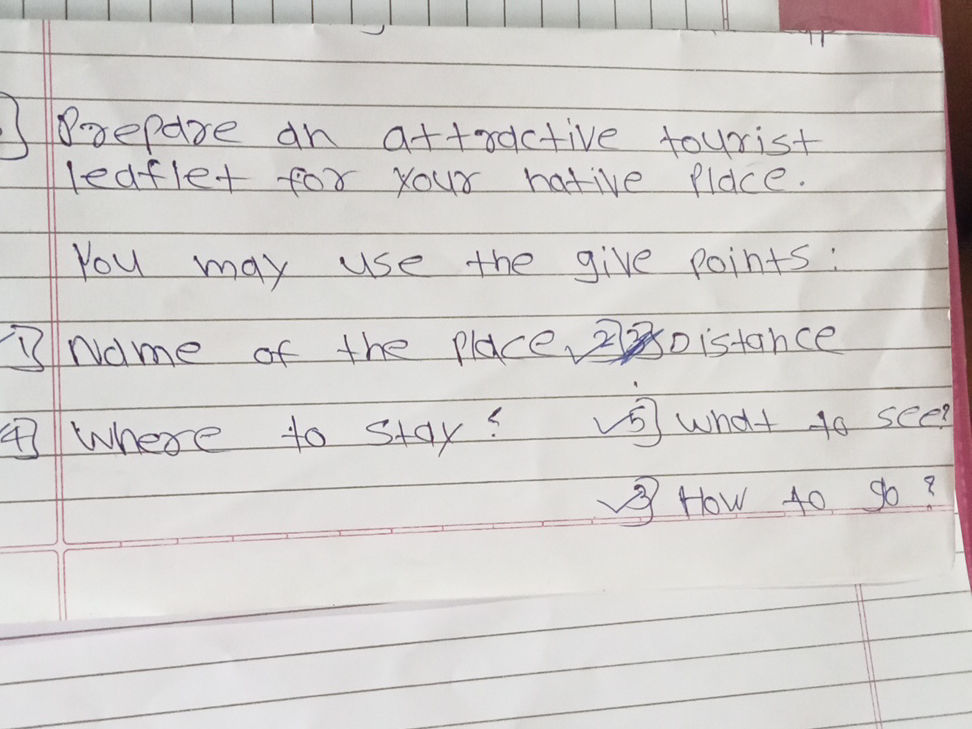 Prepare an attractive tourist
leaflet for your native place.
You may use the give points:
1] Name of the place 2] Distance
4] Where to stay?
5] What to see?
3] How to go?